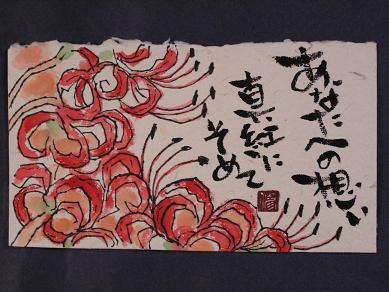 あなたへの想い
真紅に
そめて